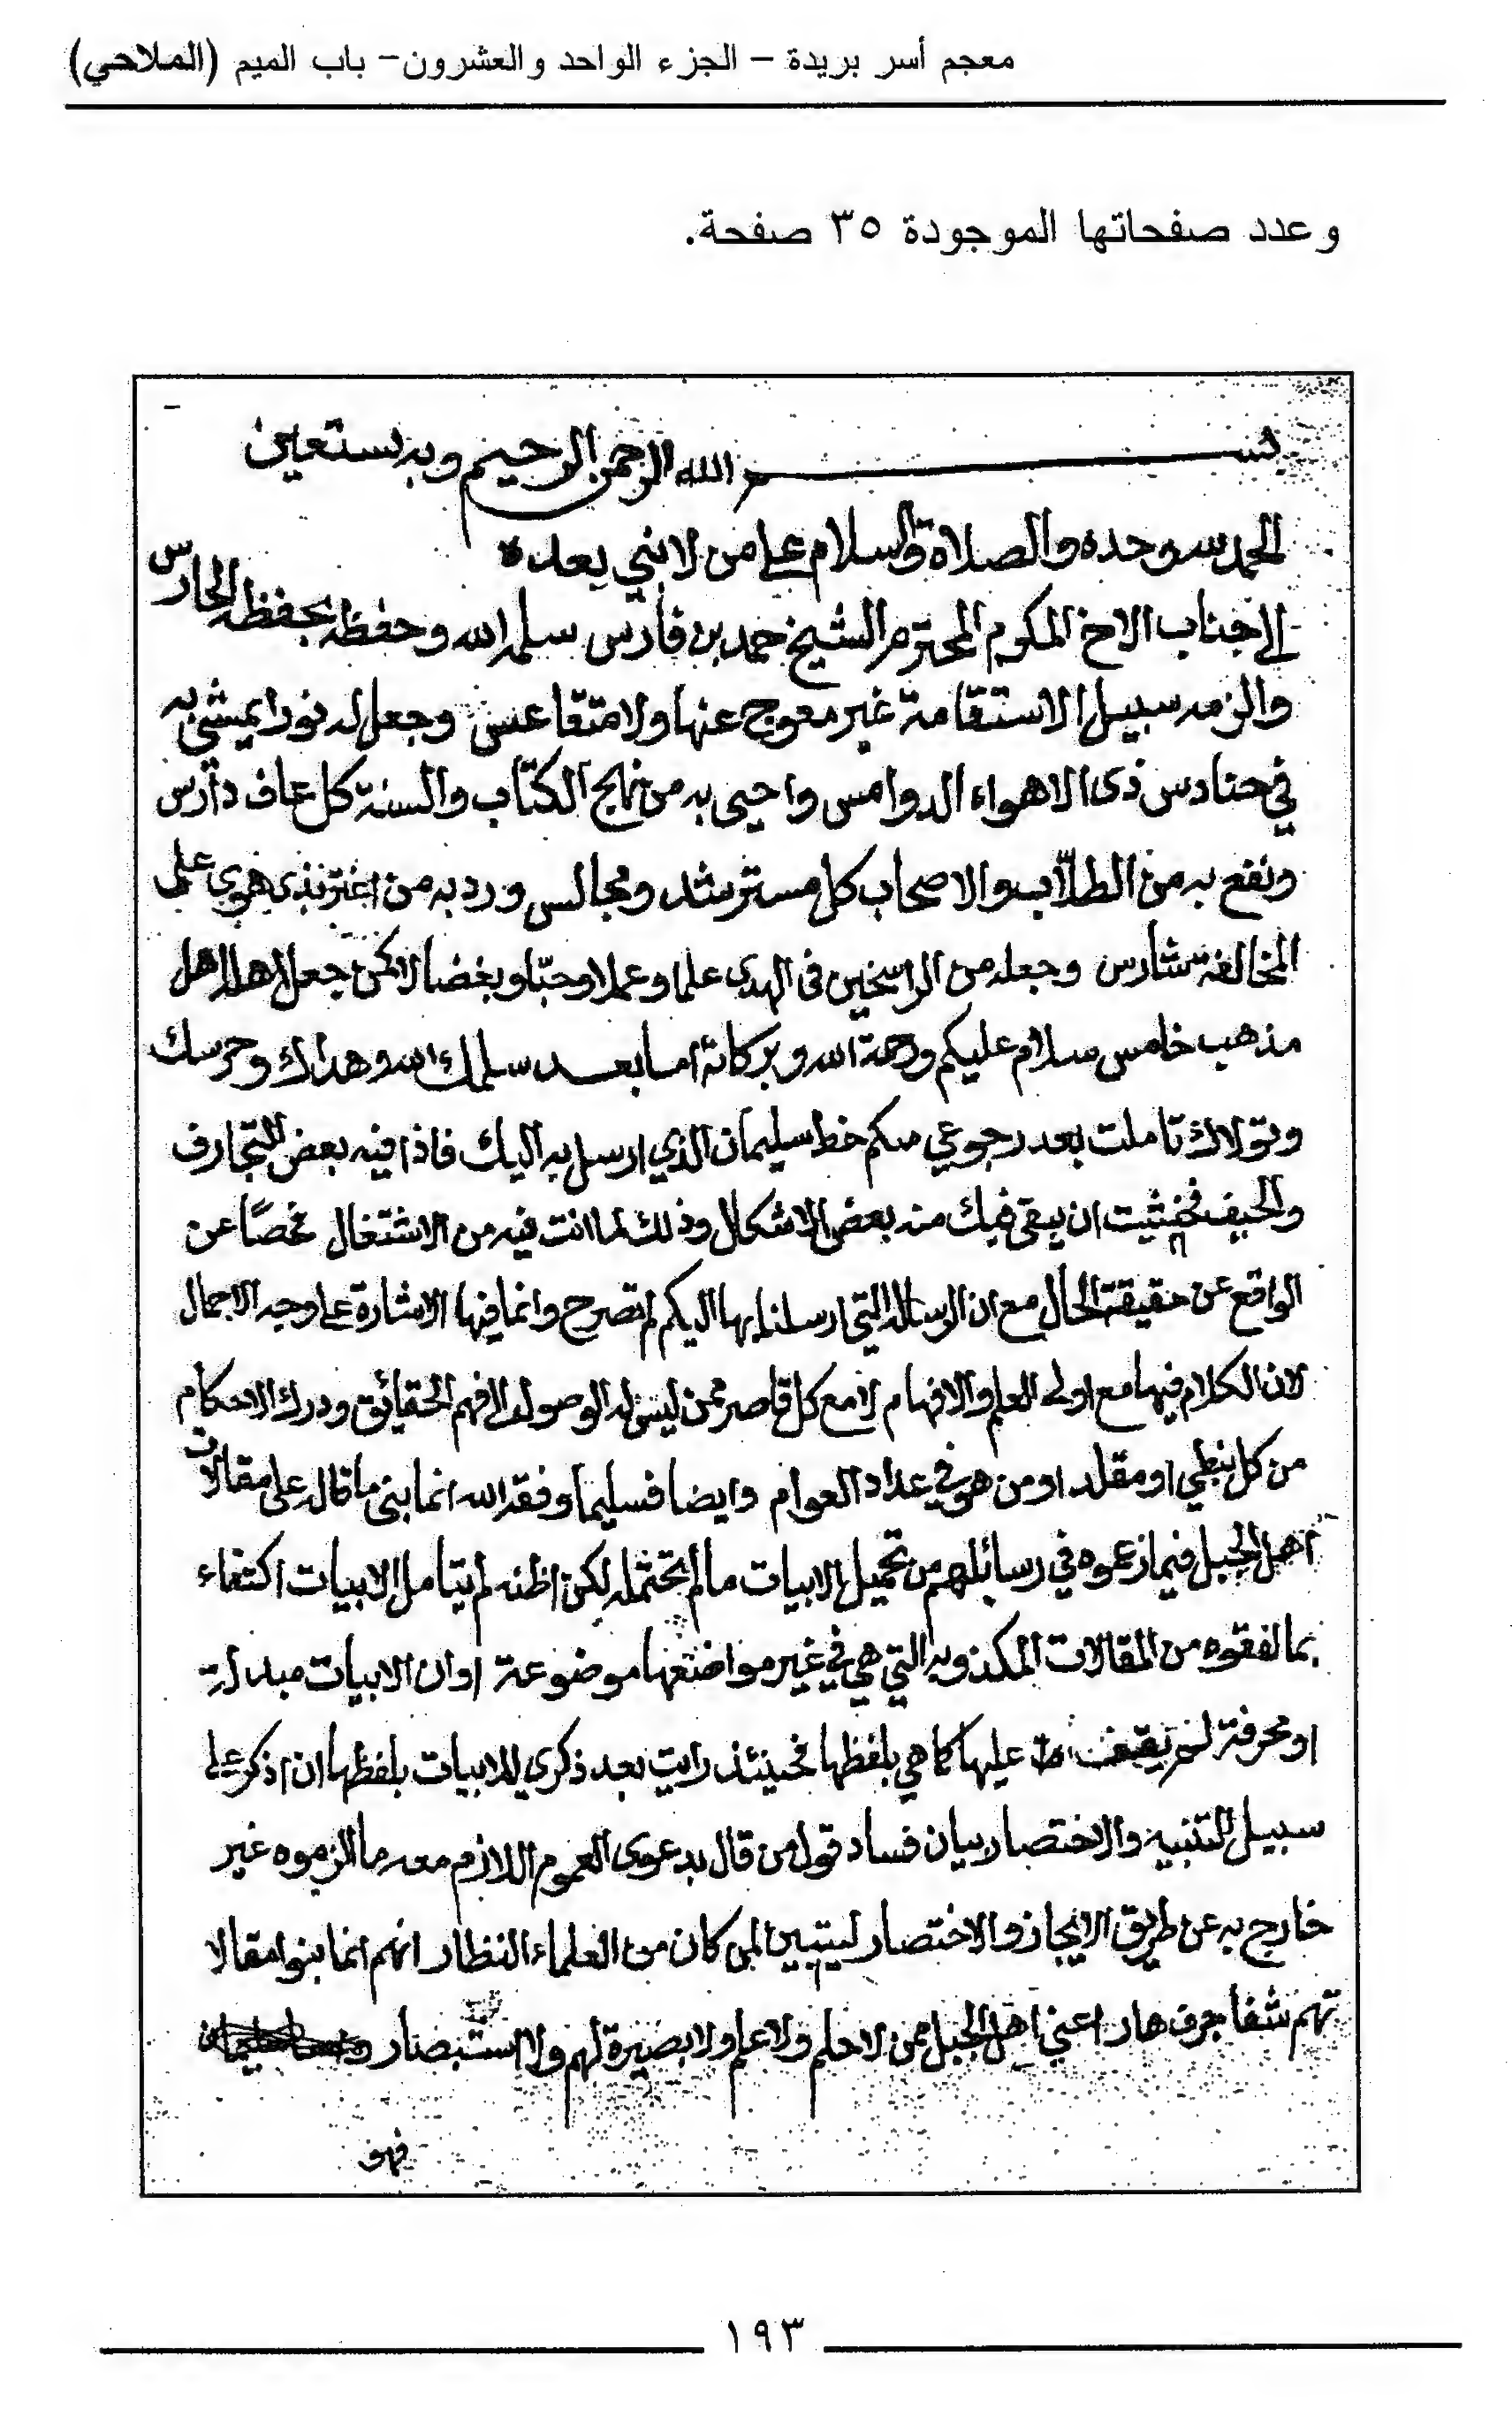 معجم أسر بريدة – الجزء الواحد والعشرون– باب الميم (الملاحي)
وعدد صفحاتها الموجودة ٣٥ صفحة.
بسم الله الرحمن الرحيم وبه نستعين
الحمد لله وحده والصلاة والسلام على من لا نبي بعده
الى جناب الاخ المكرم المحترم الشيخ حمد بن فارس سلمه الله وحفظه بحفظه الحارس
والزمه سبيل الاستقامة غير معوج عنها ولا متقاعس وجعل له نورا يمشي به
في حنادس ذى الاهواء الدوامس واحيى به من نهاج الكتاب والسنة كل عاف دارس
ونفع به من الطلاب والاصحاب كل مسترشد ومجالس ورد به من اغتر بذى هوى على
المخالفة شارس وجعله من الراسخين في الهدى علما وعملا وحبّا وبغضا لا كمن جعل لاهل
مذهب خامس سلام عليكم ورحمة الله وبركاته اما بعد سلمك الله وهداك وحرسك
وتولاك تاملت بعد رجوعي منكم خط سليمان الذي ارسل به اليك فاذا فيه بعض التجارف
والحيف فخشيت ان يبقى فيك منه بعض الاشكال وذلك لما انت فيه من الاشتغال عن
الواقع عن حقيقة الحال مع ان الرسالة التي ارسلنا بها اليكم لم تصرح وانما فيها الاشارة على وجه الاجمال
لان الكلام فيها مع اولى العلم والافهام لا مع كل قاصر ممن ليس له الوصول الى فهم الحقائق ودرك الاحكام
من كل نبطي او مقلد او من هو في عداد العوام وايضا فسليما وفقه الله انما بنى ما قاله على مقالات
اهل الجبل فيما زعموه في رسائلهم من تحميل الابيات ما لم تحتمله لكن اظنه لم يتامل الابيات اكتفاء
بما لفقوه من المقالات المكذوبه التي هي في غير مواضعها موضوعة او ان الابيات مبدلة
او محرفة لم يقف عليها كما هي بلفظها فحينئذ رايت بعد ذكري للابيات بلفظها ان اذكر على
سبيل التنبيه والاختصار بيان فساد قول من قال بدعوى العموم اللازم معه ما الزموه غير
خارج به عن طريق الايجاز والاختصار ليتبين لمن كان من العلماء النظار انهم انما بنوا مقالا
تهم شفا جرف هار اعني اهل الجبل ممن لا حلم ولا علم ولا بصيرة لهم ولا استبصار
فهو
١٩٣